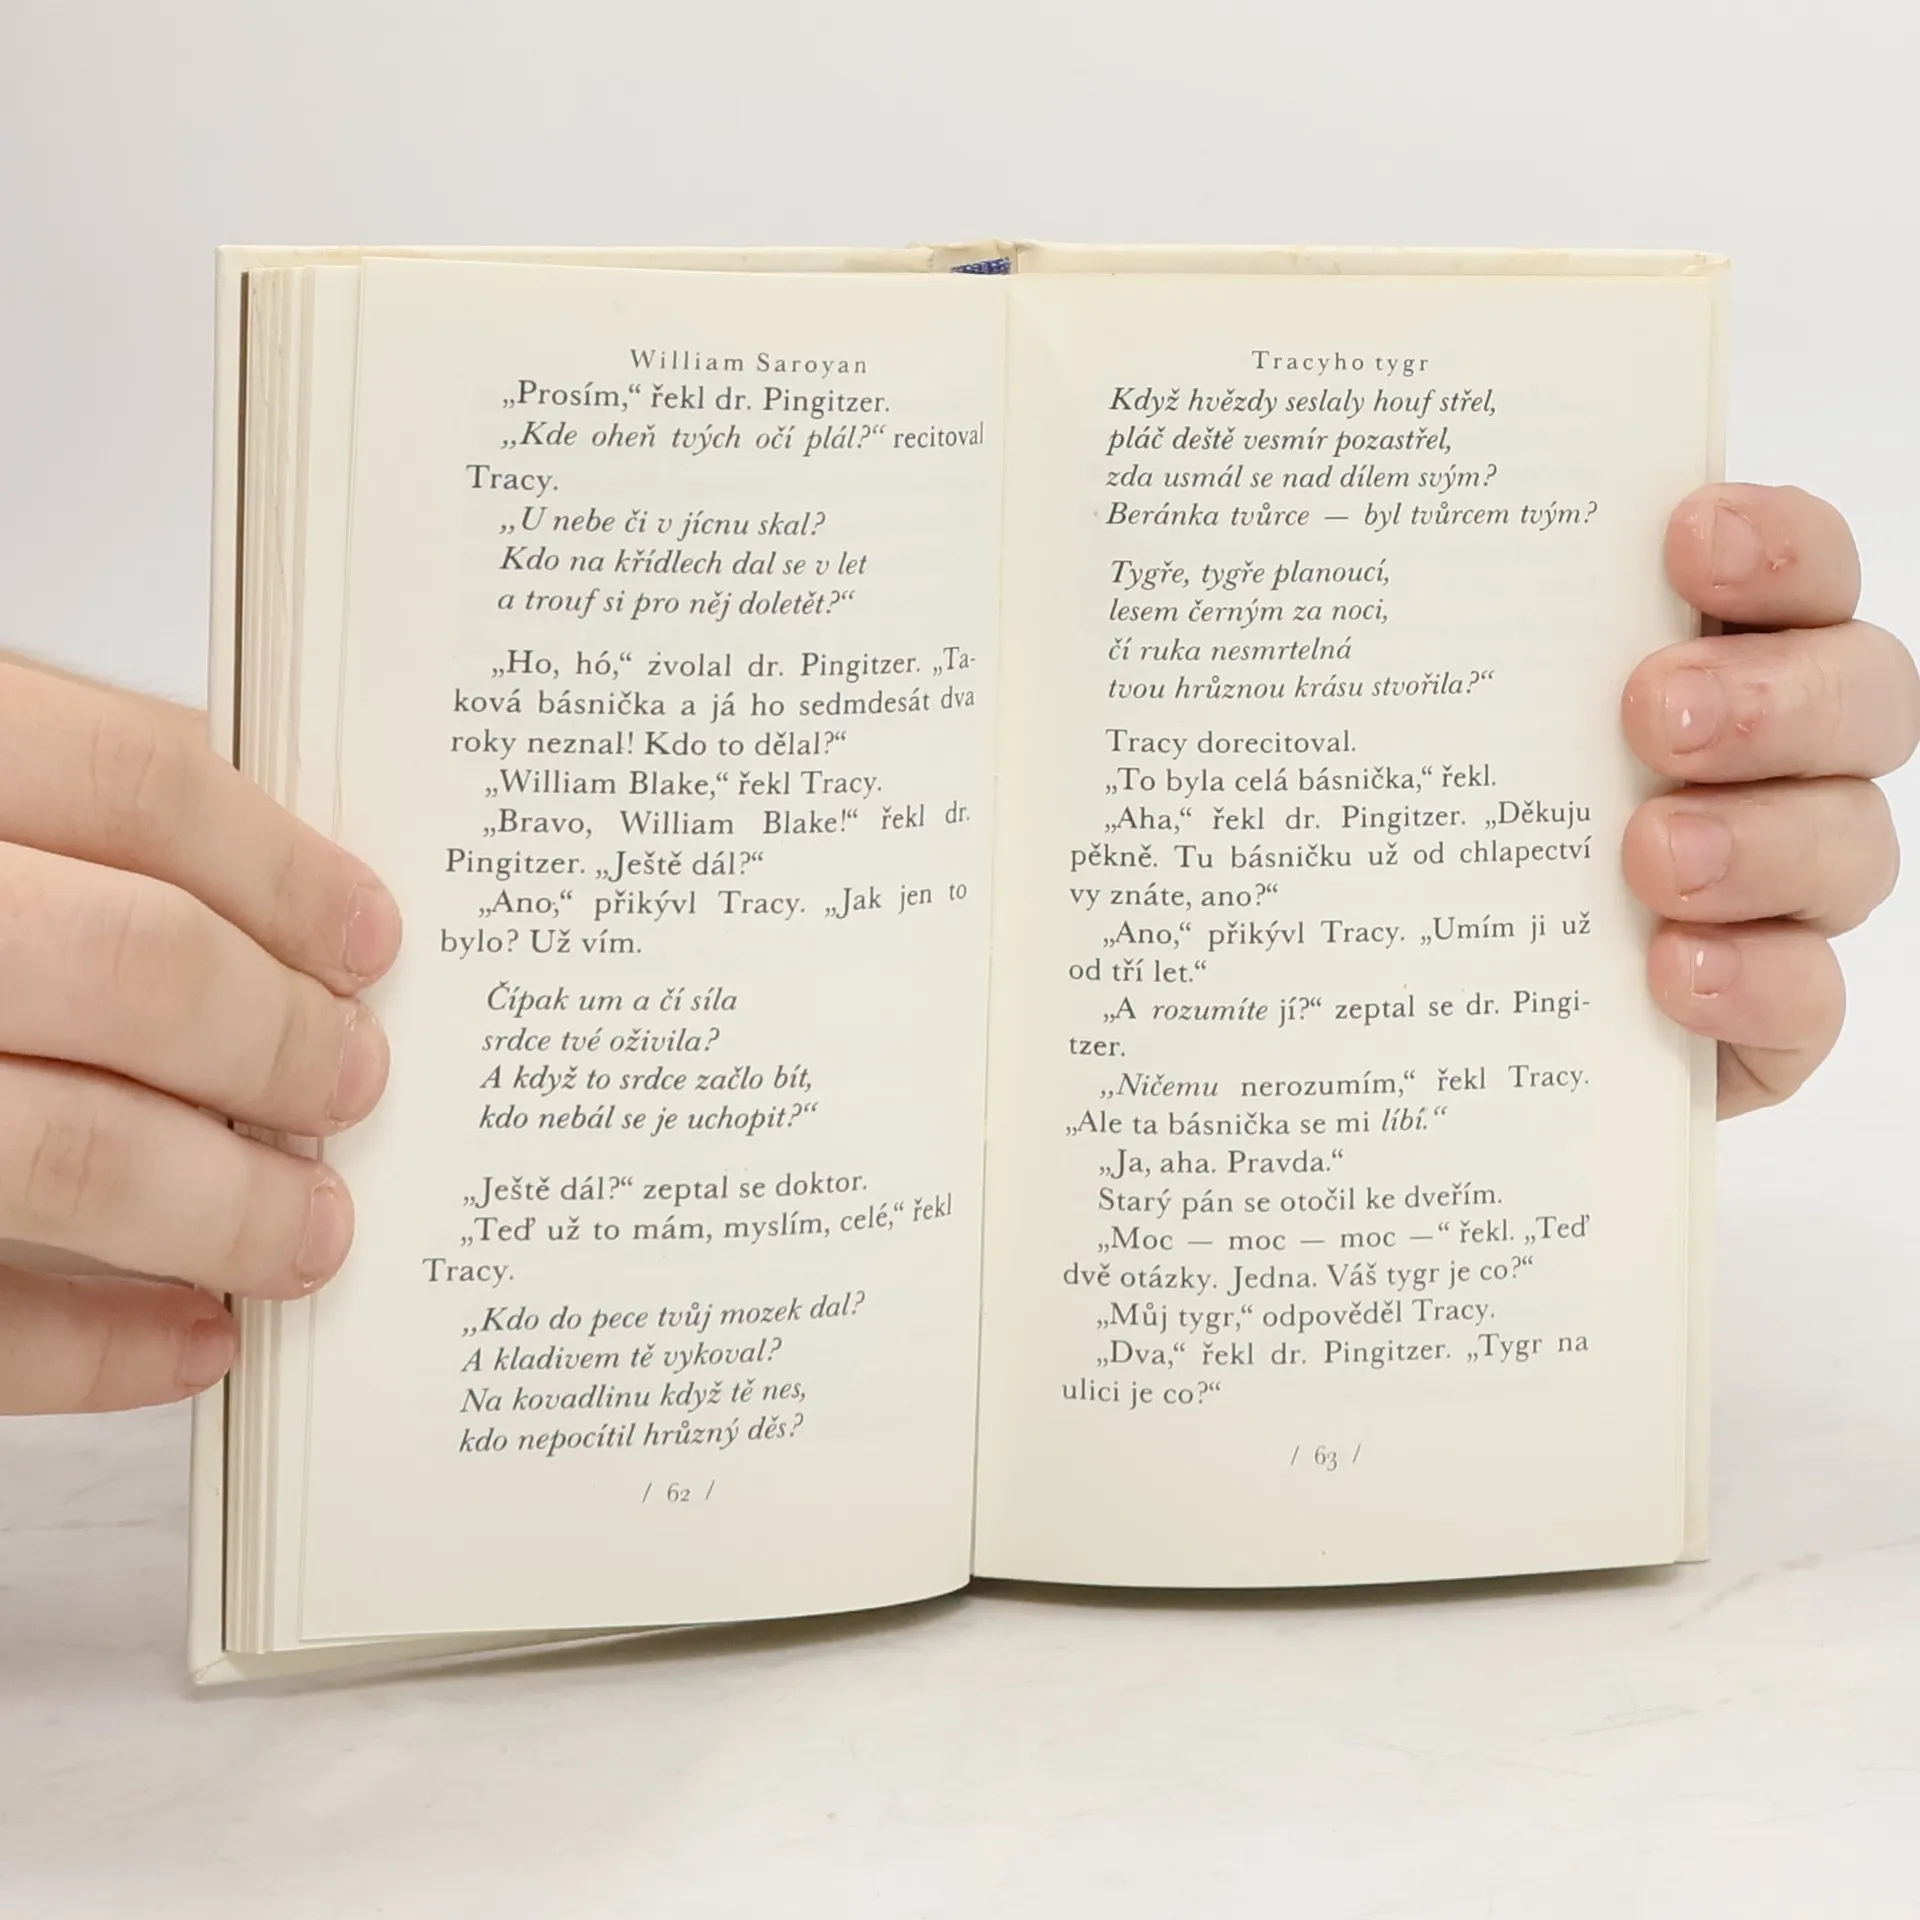 William Saroyan
„Prosím,“ řekl dr. Pingitzer.
„Kde oheň tvých očí plál?“ recitoval
Tracy.
„U nebe či v jícnu skal?
Kdo na křídlech dal se v let
a trouf si pro něj doletět?“
„Ho, hó,“ zvolal dr. Pingitzer. „Ta-
ková básnička a já ho sedmdesát dva
roky neznal! Kdo to dělal?“
„William Blake,“ řekl Tracy.
„Bravo, William Blake!“ řekl dr.
Pingitzer. „Ještě dál?“
„Ano,“ přikývl Tracy. „Jak jen to
bylo? Už vím.
Čípak um a čí síla
srdce tvé oživila?
A když to srdce začlo bít,
kdo nebál se je uchopit?“
„Ještě dál?“ zeptal se doktor.
„Teď už to mám, myslím, celé,“ řekl
Tracy.
„Kdo do pece tvůj mozek dal?
A kladivem tě vykoval?
Na kovadlinu když tě nes,
kdo nepocítil hrůzný děs?
/ 62 /
Tracyho tygr
Když hvězdy seslaly houf střel,
pláč deště vesmír pozastřel,
zda usmál se nad dílem svým?
Beránka tvůrce — byl tvůrcem tvým?
Tygře, tygře planoucí,
lesem černým za noci,
čí ruka nesmrtelná
tvou hrůznou krásu stvořila?“
Tracy dorecitoval.
„To byla celá básnička,“ řekl.
„Aha,“ řekl dr. Pingitzer. „Děkuju
pěkně. Tu básničku už od chlapectví
vy znáte, ano?“
„Ano,“ přikývl Tracy. „Umím ji už
od tří let.“
„A rozumíte jí?“ zeptal se dr. Pingi-
tzer.
„Ničemu nerozumím,“ řekl Tracy.
„Ale ta básnička se mi líbí.“
„Ja, aha. Pravda.“
Starý pán se otočil ke dveřím.
„Moc — moc — moc —“ řekl. „Teď
dvě otázky. Jedna. Váš tygr je co?“
„Můj tygr,“ odpověděl Tracy.
„Dva,“ řekl dr. Pingitzer. „Tygr na
ulici je co?“
/ 63 /